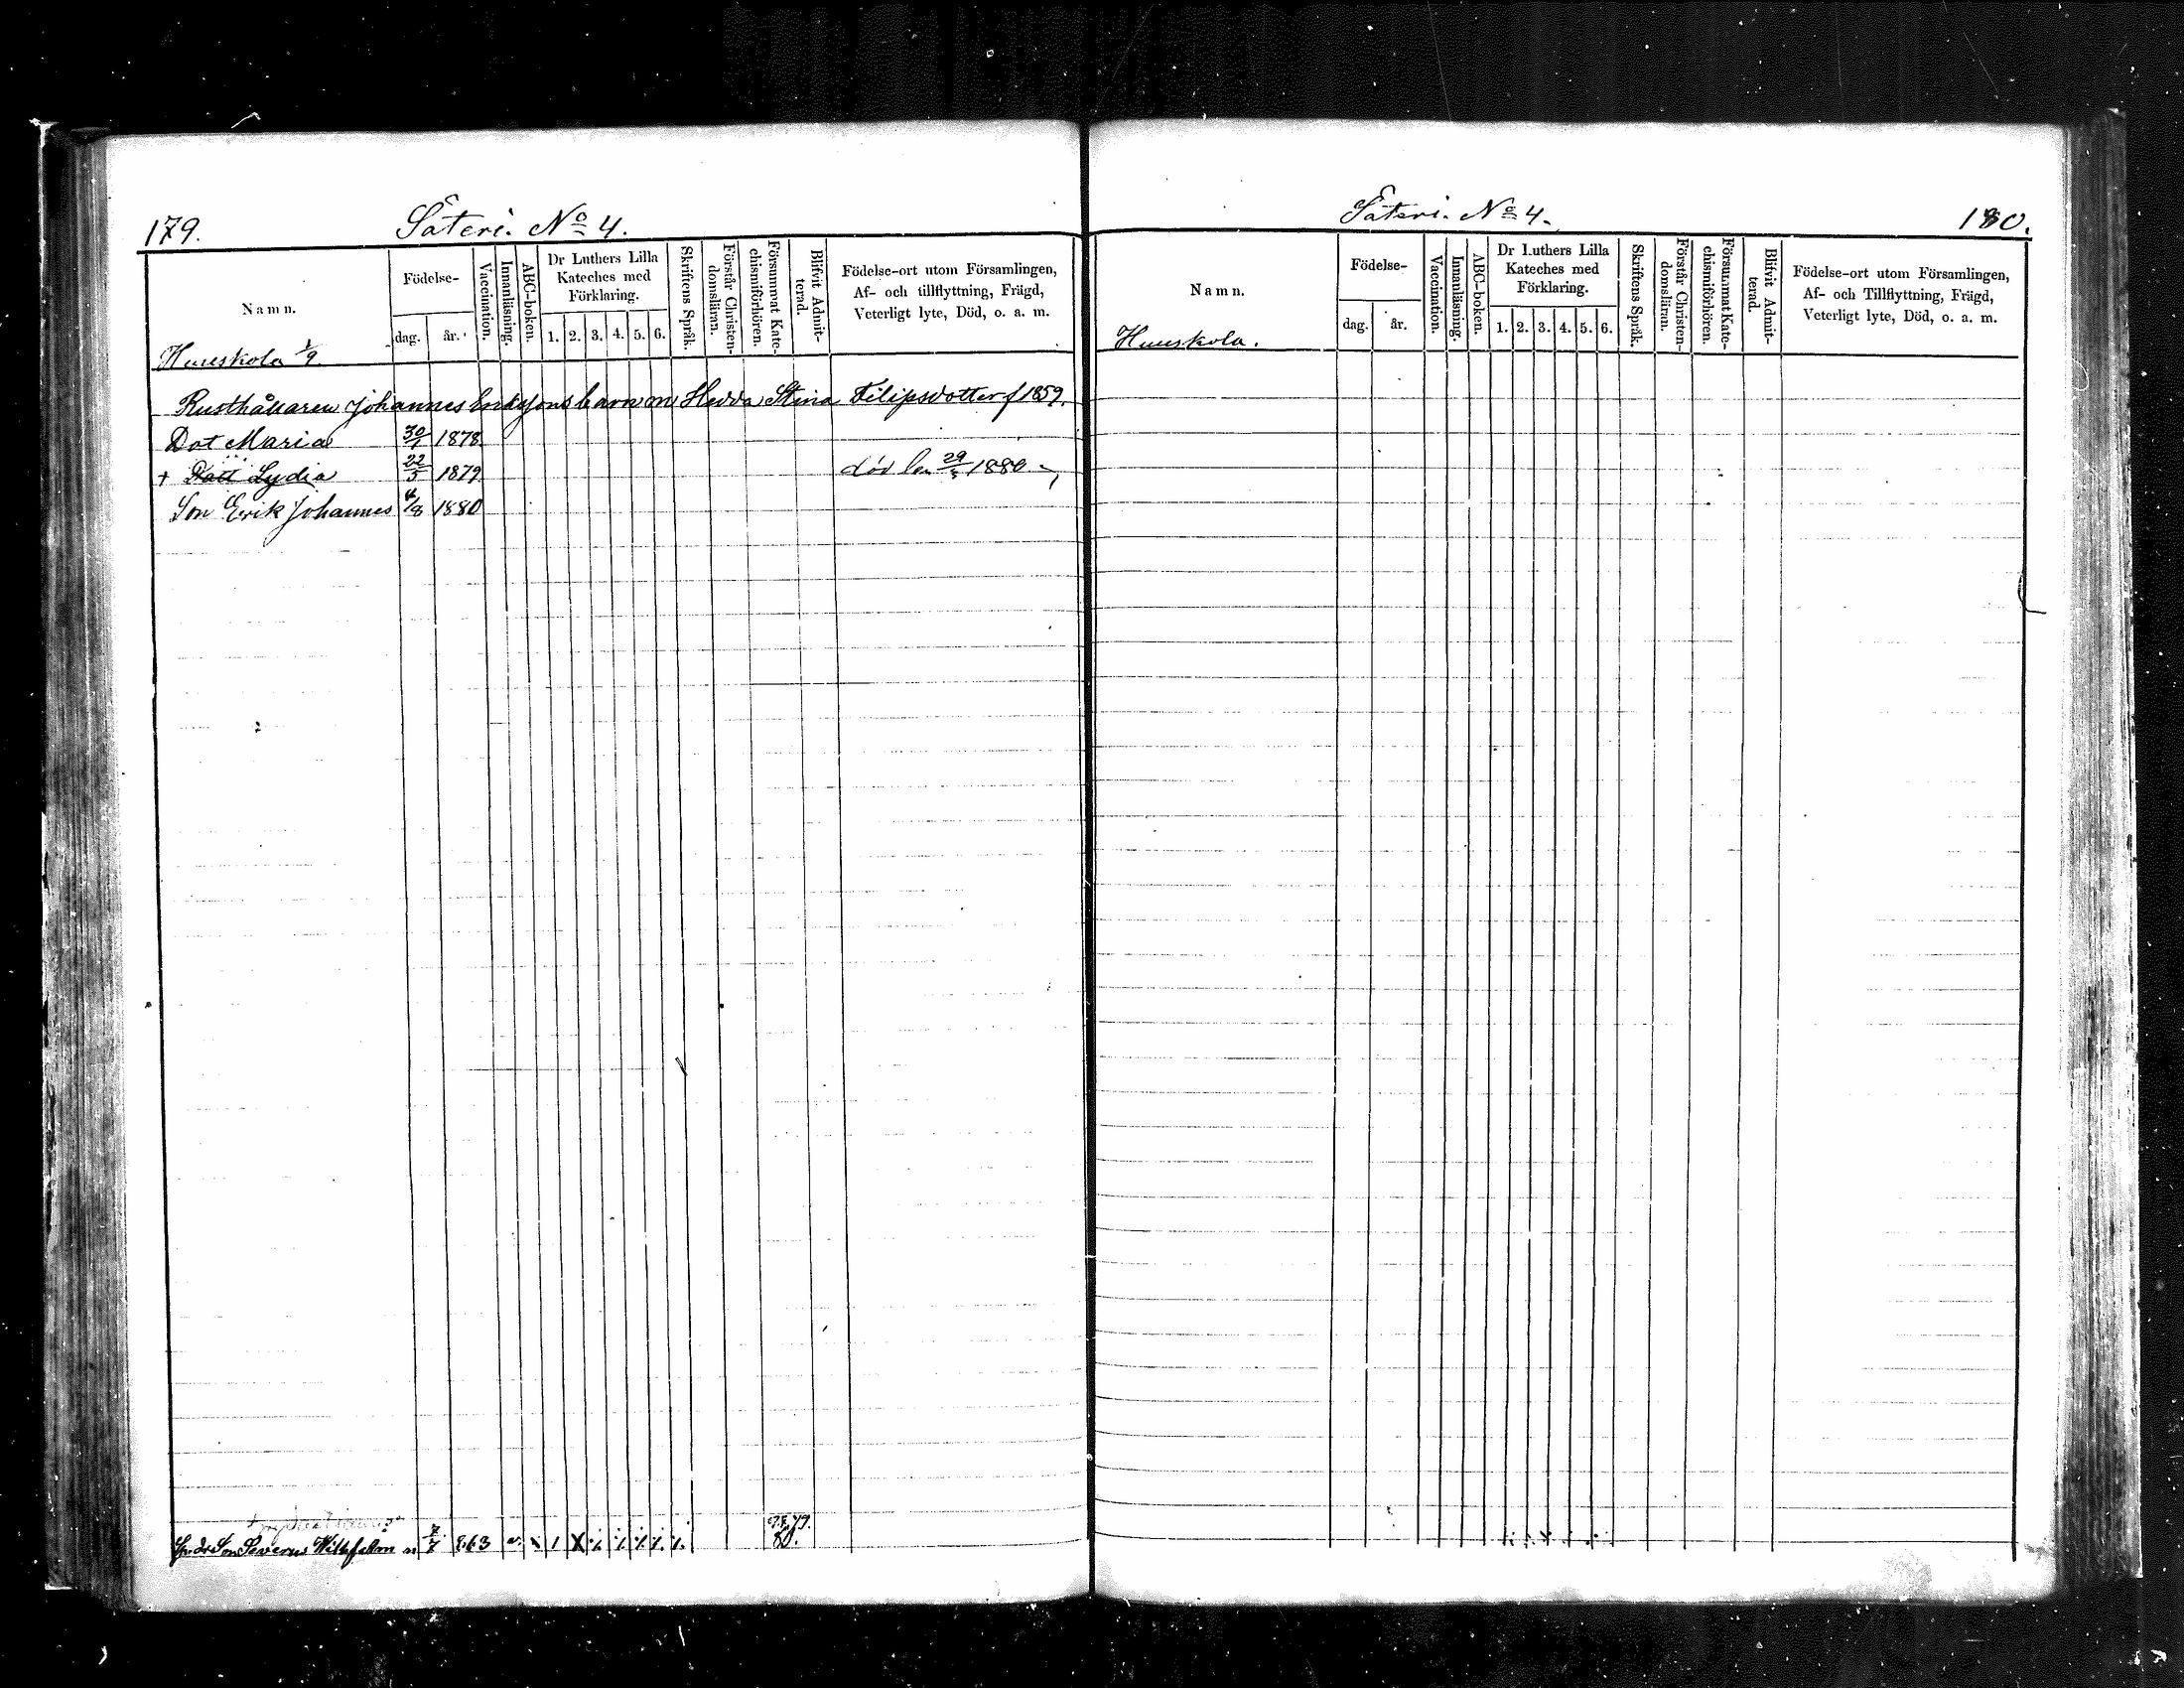 179.
Säteri. No 4.
Namn.
Födelse-
dag.
år.
Vaccination.
Innanläsning.
ABC-boken.
Dr Luthers Lilla
Kateches med
Förklaring.
1. 2. 3. 4. 5. 6.
Skriftens Språk.
Förstår Christen-
domsläran.
Försummat Kate-
chismiförhören.
Blifvit Admit-
terad.
Födelse-ort utom Församlingen,
Af- och tillflyttning, Frägd,
Veterligt lyte, Död, o. a. m.
Huuskola
Rusthållaren Johannes Erikssons barn m Hedda Stina Filipsdotter f 1859.
Dot Maria 30/1 1878
+ Dott Lydia 22/5 1879 död den 29/5 1880
Son Erik Johannes 4/8 1880
Son Severus 7/7 863
78,79.
80.
Säteri. No 4.
180.
Namn.
Födelse-
dag.
år.
Vaccination.
Innanläsning.
ABC-boken.
Dr Luthers Lilla
Kateches med
Förklaring.
1. 2. 3. 4. 5. 6.
Skriftens Språk.
Förstår Christen-
domsläran.
Försummat Kate-
chismiförhören.
Blifvit Admit-
terad.
Födelse-ort utom Församlingen,
Af- och Tillflyttning, Frägd,
Veterligt lyte, Död, o. a. m.
Huuskola.